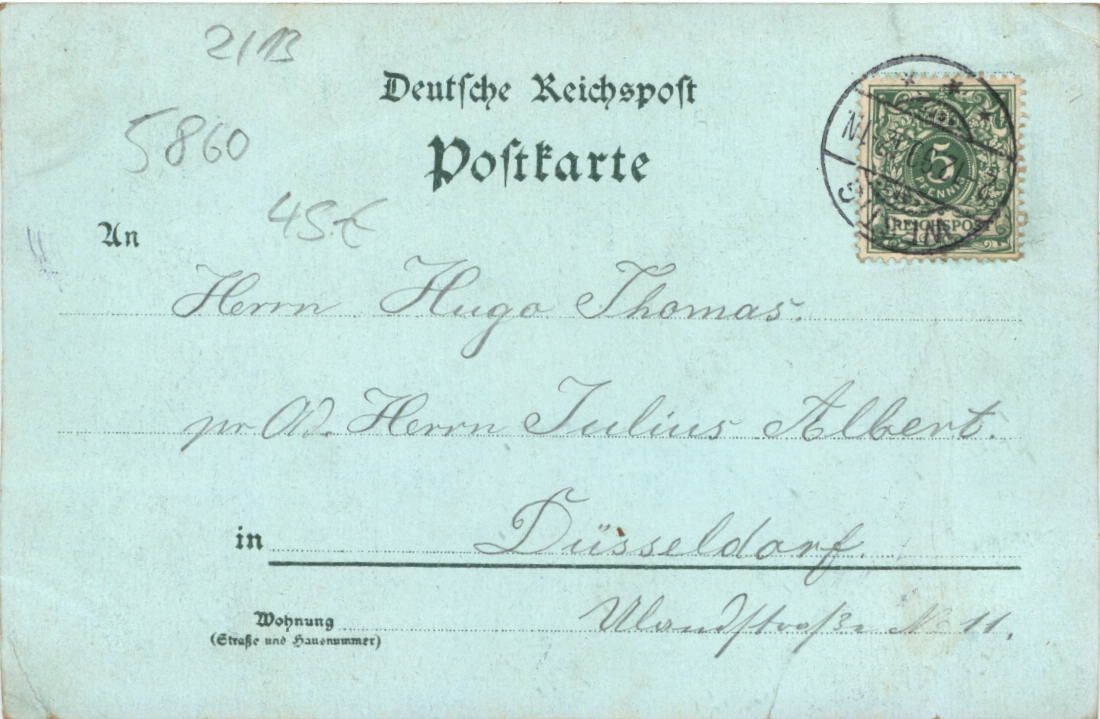 2/13
Deutsche Reichspost
5860
Postkarte
45€
An
5
PFENNIG
REICHSPOST
STETTIN
Herrn Hugo Thomas.
pr Ad. Herrn Julius Albert.
in Düsseldorf.
Wohnung
(Straße und Hausnummer)
Ulandstraße No 11.